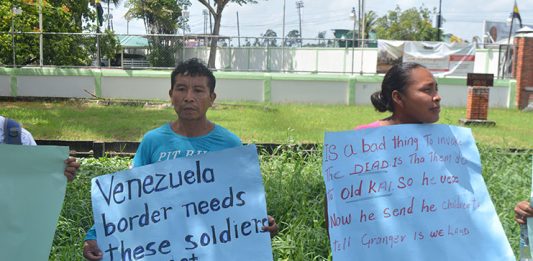 PIT BU
Venezuela
border needs
these soldiers
Is a bad thing to invoke
The DEAD Is tha them do
To OLD KAI. So he vexs
Now he send he children to
tell Granger is we Land